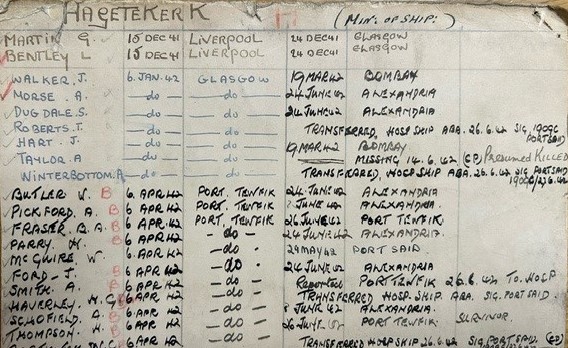 HAGETEKERK (MIN: OF SHIP:)
MARTIN G. 15 DEC 41 LIVERPOOL 24 DEC 41 GLASGOW
BENTLEY L 15 DEC 41 LIVERPOOL 24 DEC 41 GLASGOW
WALKER. J. 6. JAN. 42 GLASGOW 19 MAR 42 BOMBAY
MORSE. A. — do — — do — 24 JUNE 42 ALEXANDRIA
DUGDALE. S. — do — — do — 24 JUNE 42 ALEXANDRIA
ROBERTS. T. — do — — do — TRANSFERRED. HOSP SHIP ABA. 26.6.42 SIG. 1909C PORT SAID
HART. J. — do — — do — 19 MAR 42 BOMBAY
TAYLOR. A — do — — do — MISSING 14.6.42 (CP) Presumed Killed
WINTERBOTTOM. A — do — — do — TRANSFERRED. HOSP SHIP ABA. 26.6.42 SIG. PORT SAID
BUTLER W. B 6. APR 42 PORT. TEWFIK 24 JUNE 42 ALEXANDRIA
PICKFORD. A. B 6 APR 42 PORT. TEWFIK JUNE 42 ALEXANDRIA.
FRASER. B. A. B 6 APR 42 PORT. TEWFIK 26 JUNE 42 PORT TEWFIK
PARRY. H. B 6 APR 42 — do — 24 JUNE 42 ALEXANDRIA.
McGUIRE. W 6. APR 42 — do — 29 MAY 42 PORT SAID
FORD - J. B 6 APR 42 — do — 24 JUNE 42 ALEXANDRIA
SMITH. A. B 6 APR 42 — do — Reported PORT TEWFIK 26.6.42 TO HOSP
HAVERLEY. H. G B 6 APR 42 — do — TRANSFERRED HOSP. SHIP. ABA. SIG. PORT SAID.
SCHOFIELD. A. B 6 APR 42 — do — JUNE 42 ALEXANDRIA.
THOMPSON. H. B 6 APR 42 — do — 26 JUNE PORT TEWFIK. SURVIVOR.
6 APR 42 — do — TRANSFERRED HOSP SHIP 26.6.42 SIG. PORT SAID.